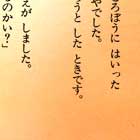 ろぼうに はいった
やでした。
うと した ときです。
えが しました。
のかい?」